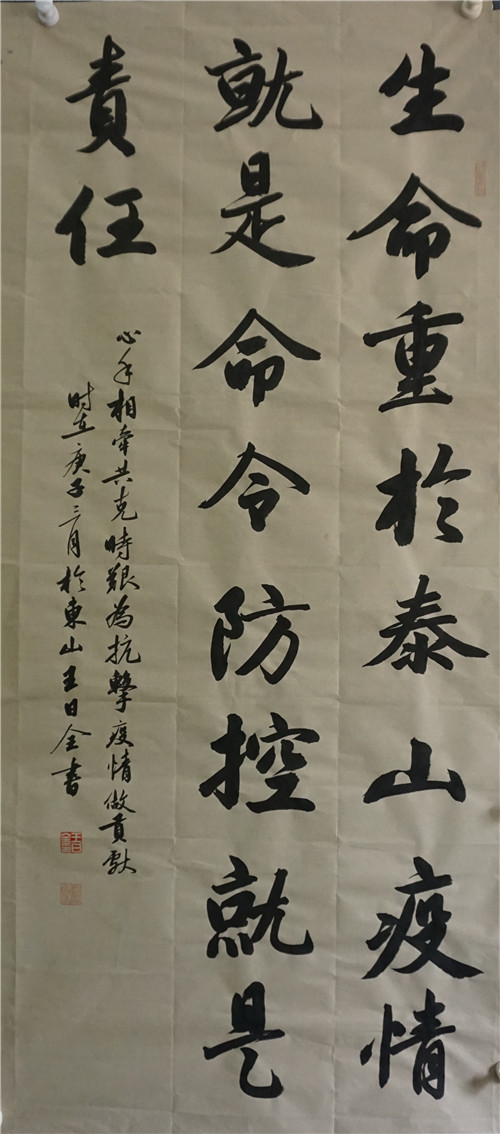 生命重於泰山疫情
就是命令防控就是
責任
心手相牽共克時艱為抗擊疫情做貢獻
时在庚子三月於東山王日全書